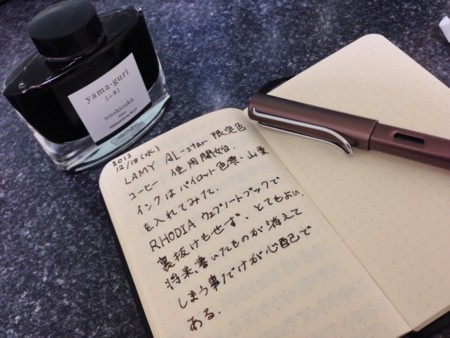 yama-guri
[山栗]
iroshizuku
2012
12/19(水)
LAMY AL-star 限定色
コーヒー 使用開始。
インクはパイロット色雫・山栗
を入れてみた。
RHODIA ウェブノートブックで
裏抜けもせず、とてもよい。
将来、書いたものが消えて
しまう事だけが心配で
ある。